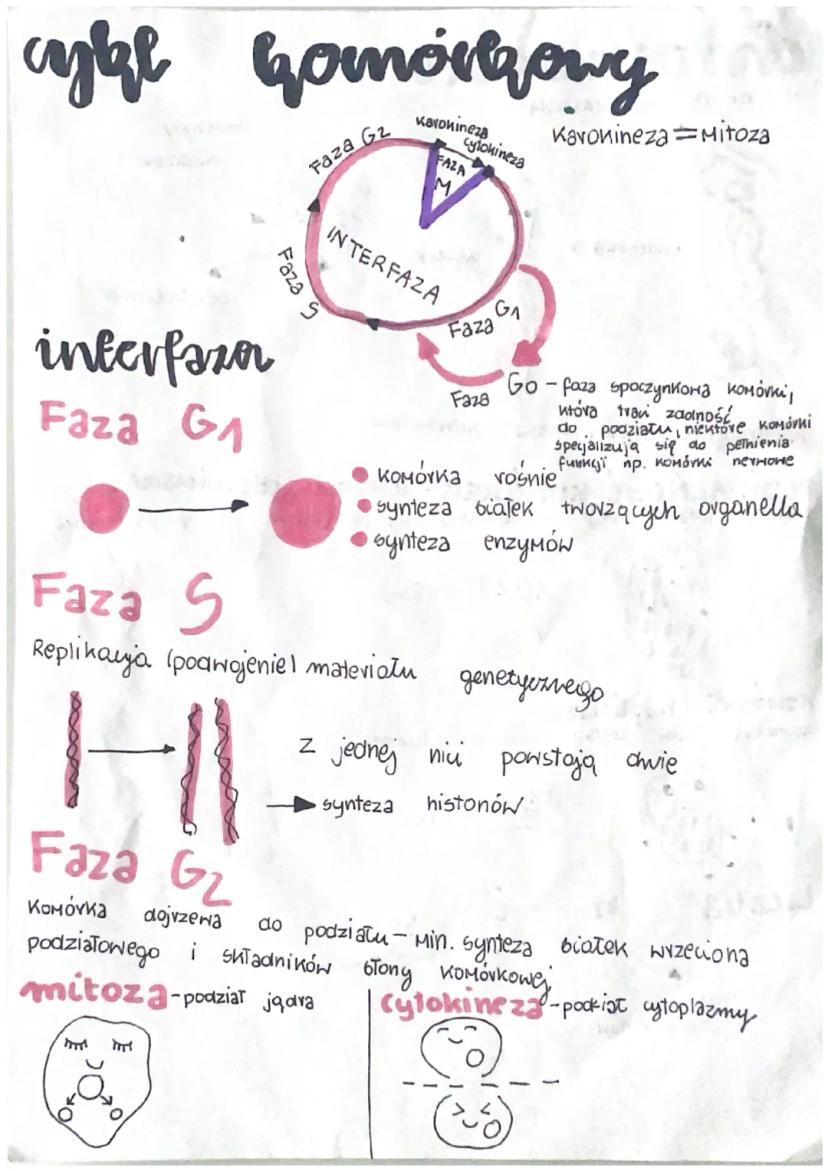 cykl komórkowy
Karokineza = Mitoza
Karokineza
cytokineza
Faza G2
FAZA
M
INTERFAZA
Faza S
Faza G1
interfaza
Faza G0 - faza spoczynkowa komórki,
która traci zdolność
do podziału, niektóre komórki
specjalizują się do pełnienia
funkcji np. komórki nerwowe
Faza G1
komórka rośnie
synteza białek tworzących organella
synteza enzymów
Faza S
Replikacja (podwojenie) materiału genetycznego
Z jednej nici powstają dwie
synteza histonów
Faza G2
Komórka dojrzewa do podziału - min. synteza białek wrzeciona
podziałowego i składników błony komórkowej
mitoza - podział jądra
cytokineza - podział cytoplazmy